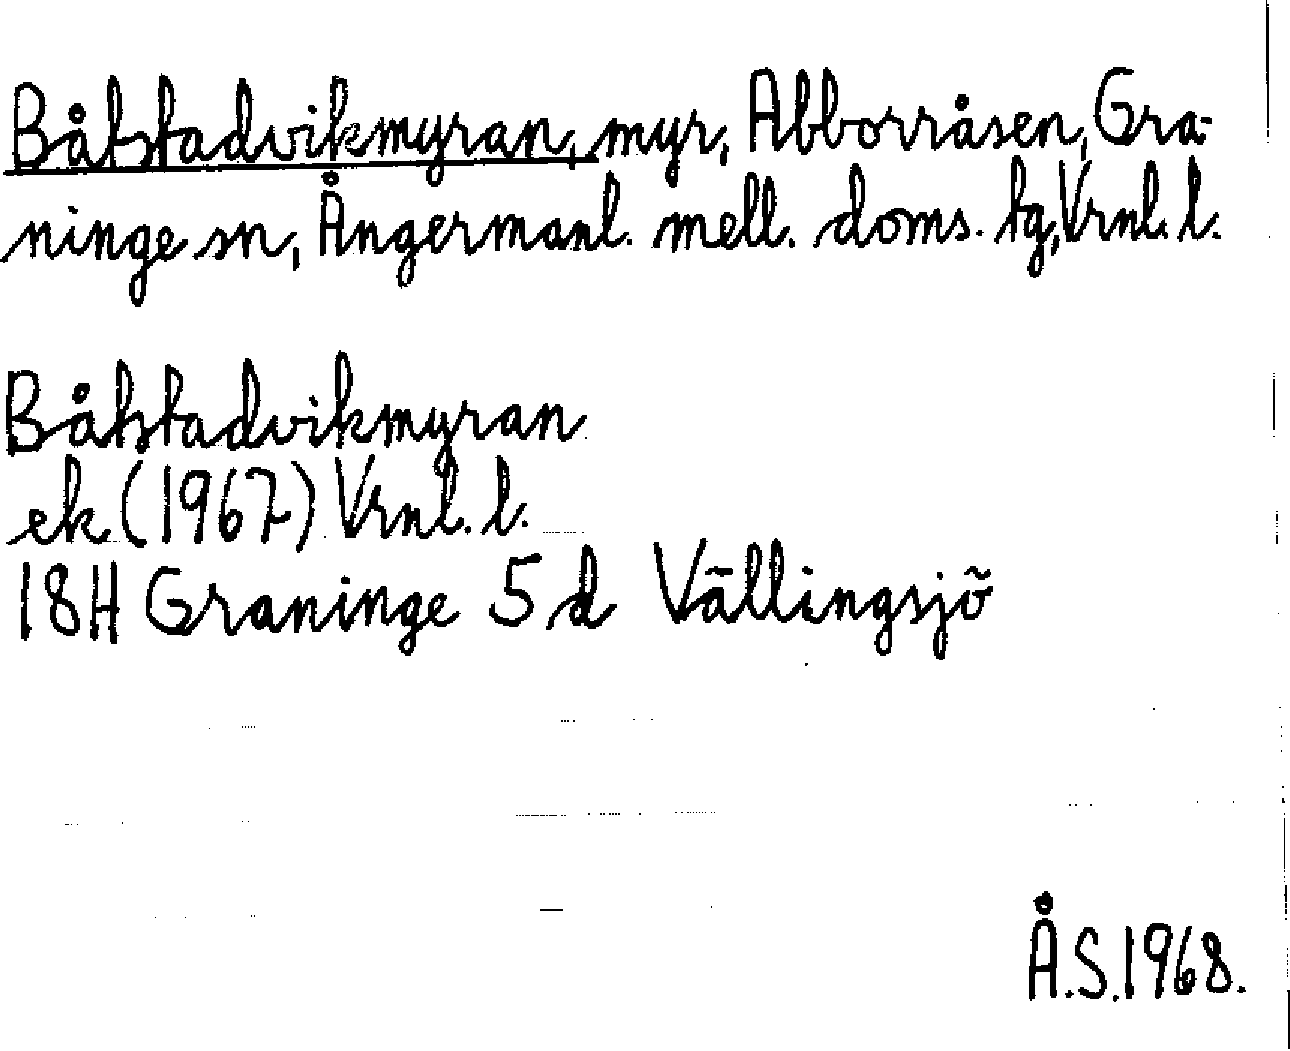 Båtstadvikmyran, myr, Abborråsen, Gra-
ninge sn, Ångermanl. mell. doms. tg, Vrnl. l.
Båtstadvikmyran
ek. (1967) Vrnl. l.
18H Graninge 5 d Vällingsjö
Å.S.1968.